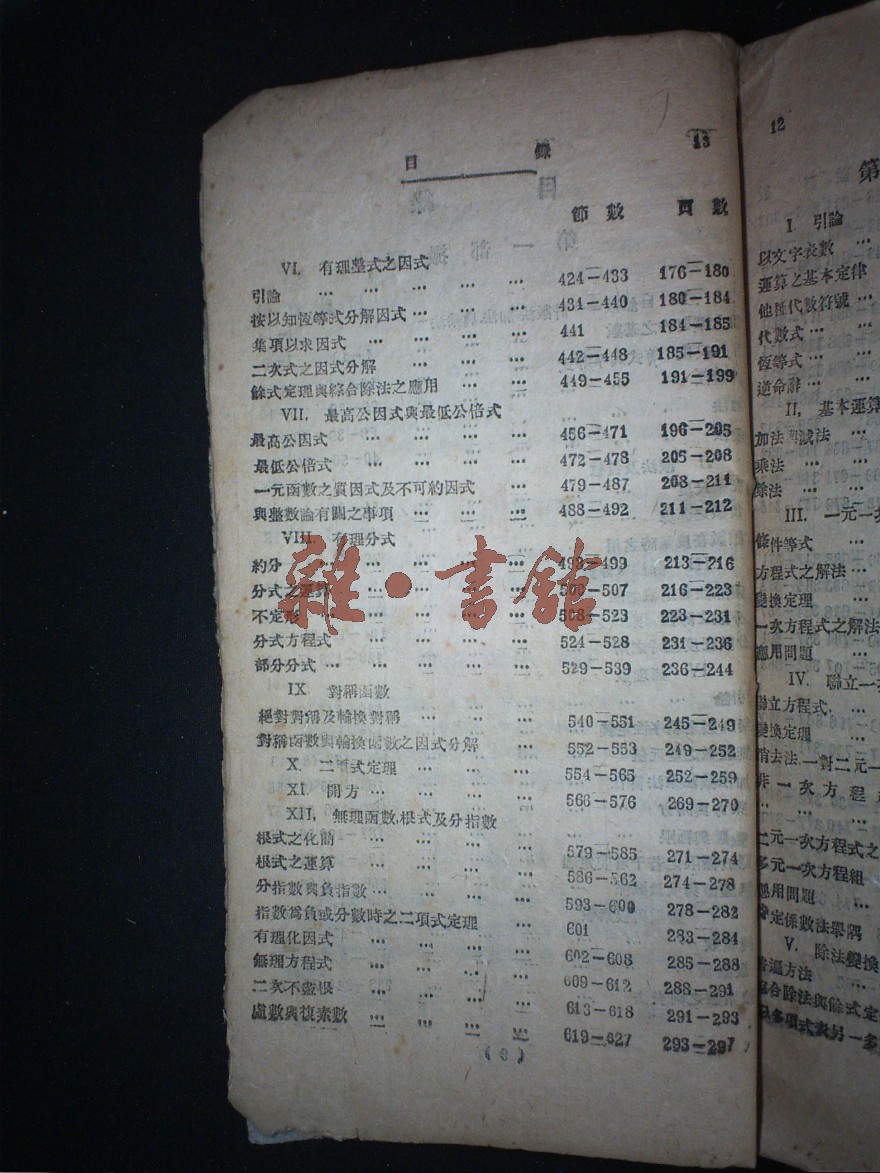 目 錄 13
節數 頁數
VI. 有理整式之因式
引論 … … … … … 424—433 176—180
按以知恆等式分解因式… … … 431—440 180—184
集項以求因式 … … … … 441 184—185
二次式之因式分解 … … … 442—448 185—191
餘式定理與綜合除法之應用 … … 449—455 191—199
VII. 最高公因式與最低公倍式
最高公因式 … … … … 456—471 196—205
最低公倍式 … … … … 472—478 205—208
一元函數之質因式及不可約因式 … 479—487 208—211
與整數論有關之事項 … … … 488—492 211—212
VIII. 有理分式
約分 … … … … 493—499 213—216
分式之運算 500—507 216—223
不定形 508—523 223—231
分式方程式 … … … … 524—528 231—236
部分分式… … … … … 529—539 236—244
IX 對稱函數
絕對對稱及輪換對稱 … … … 540—551 245—249
對稱函數與輪換函數之因式分解 … 552—553 249—252
X. 二項式定理 … … … 554—565 252—259
XI. 開方 … … … … 566—576 269—270
XII, 無理函數,根式及分指數
根式之化簡 … … … … 579—585 271—274
根式之運算 … … … … 586—562 274—278
分指數與負指數… … … … 593—600 278—282
指數為負或分數時之二項式定理 … 601 283—284
有理化因式 … … … … 602—608 285—288
無理方程式 … … … … 609—612 288—291
二次不盡根 … … … … 613—618 291—293
虛數與複素數 … … … … 619—627 293—297
(6)
12
第
I. 引論
以文字表數 … …
運算之基本定律
他種代數符號… …
代數式… …
恆等式… …
逆命辭… …
II, 基本運算
加法與減法 …
乘法 … …
除法 … …
III. 一元一
條件等式 …
方程式之解法…
變換定理 …
一次方程式之解法
應用問題 …
IV. 聯立一
聯立方程式. …
變換定理 …
消去法.一對二元一
非一次方程
二元一次方程式之
多元一次方程組
應用問題 …
待定係數法舉隅
V. 除法變換
普通方法 …
綜合除法與餘式定
以多項式表另一多
雜·書館